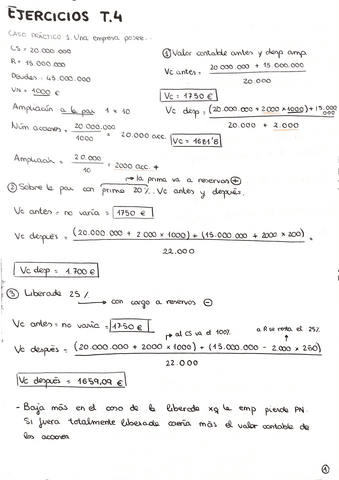 EJERCICIOS T.4
CASO PRÁCTICO 1. Una empresa posee...
CS = 20.000.000
R = 15.000.000
Deudas = 45.000.000
VN = 1000 €
Ampliación a la par 1 x 10
Núm acciones = 20.000.000 / 1000 = 20.000 acc.
Ampliación = 20.000 / 10 = 2000 acc. +
① Valor contable antes y desp amp
Vc antes = 20.000.000 + 15.000.000 / 20.000
Vc = 1750 €
Vc desp = (20.000.000 + 2000 x 1000) + 15.000.000 / 20.000 + 2.000
Vc = 1681'8
→ la prima va a reservas ⊕
② Sobre la par con prima 20%. Vc antes y después.
Vc antes = no varía = 1750 €
Vc después = (20.000.000 + 2.000 x 1000) + (15.000.000 + 2000 x 200) / 22.000 =
Vc desp = 1.700 €
③ Liberada 25% → con cargo a reservas ⊖
Vc antes = no varía = 1750 €
→ al CS va el 100%
a R se resta el 25%
Vc después = (20.000.000 + 2000 x 1000) + (15.000.000 - 2.000 x 250) / 22.000
Vc después = 1659,09 €
- Baja más en el caso de la liberada xq la emp pierde PN.
Si fuera totalmente liberada caería más el valor contable de
las acciones
①